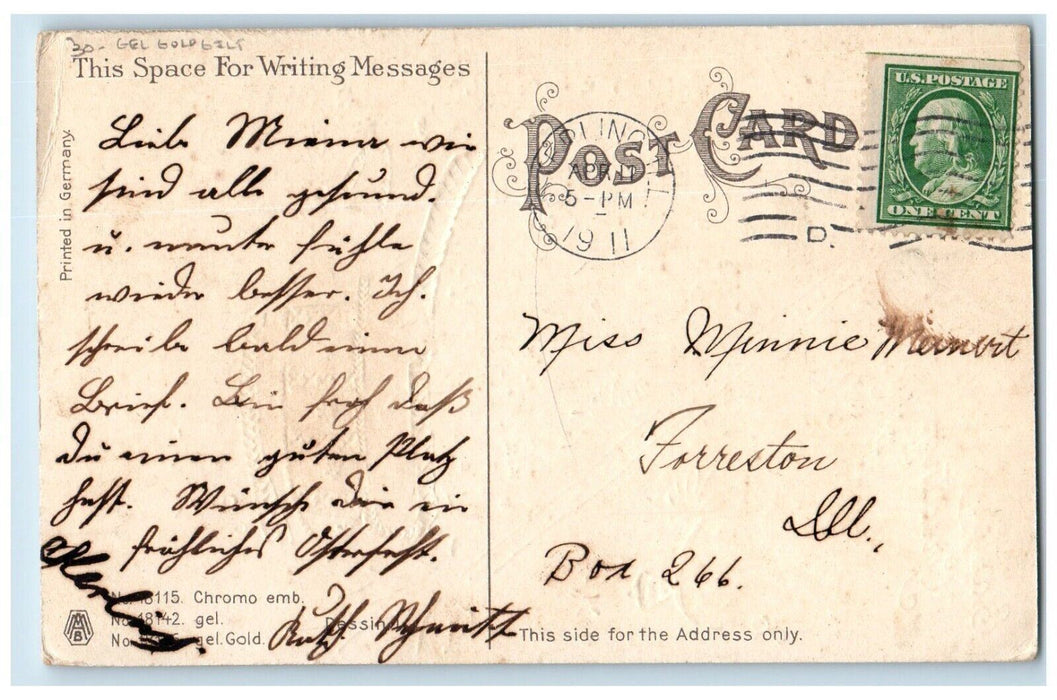 30- GEL GOLD GILT
This Space For Writing Messages
Printed in Germany.
Liebe Miena wir
sind alle gesund.
u. munter fühle
wieder besser. Ich.
schreibe bald einen
Brief. Bin froh daß
du einen guten Platz
hast. Wünsche dir ein
fröhliches Osterfest.
Ruth Schmitt
No. 18115. Chromo emb.
No. 18142. gel.
No. gel. Gold.
Dessin
MAB
POST CARD
APR
5-PM
1911
D.
U.S. POSTAGE
ONE CENT
Miss Minnie Meinert
Forreston
Ill.,
Box 266.
This side for the Address only.